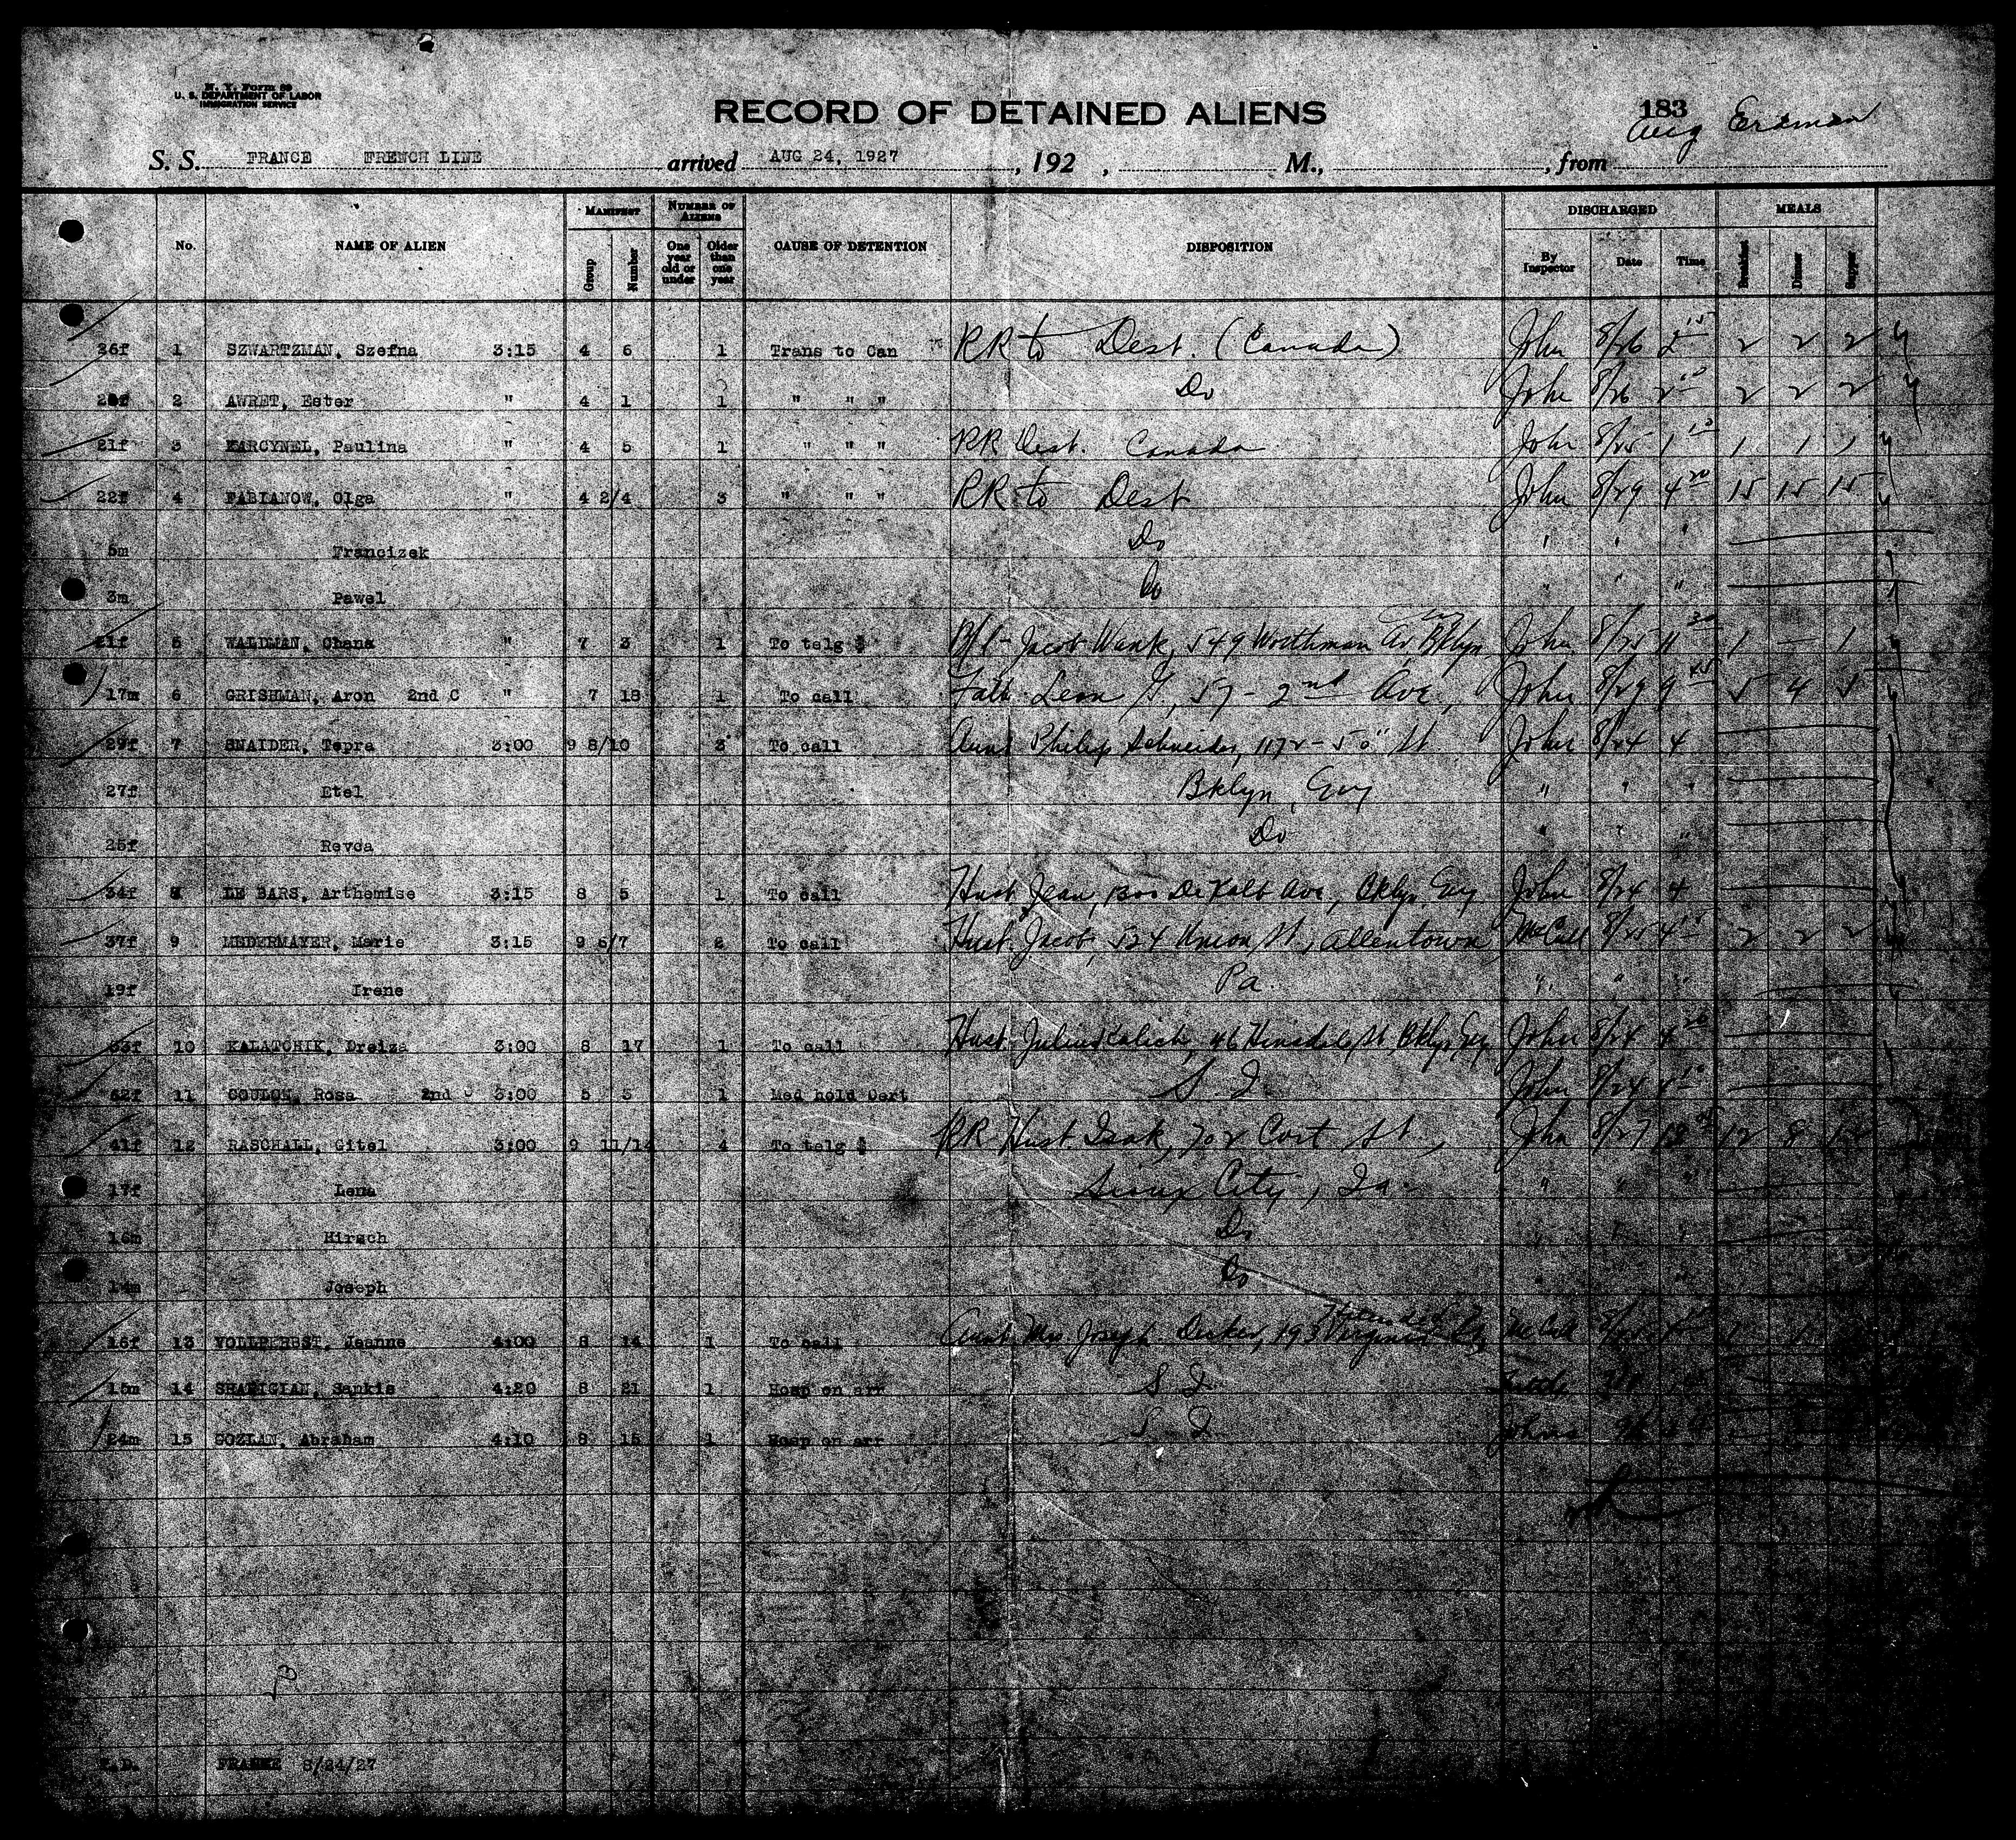 N. Y. Form 99
U. S. DEPARTMENT OF LABOR
IMMIGRATION SERVICE
RECORD OF DETAINED ALIENS
183
Aug Erdman
S. S. FRANCE FRENCH LINE arrived AUG 24, 1927, 192 , M., , from
No. NAME OF ALIEN MANIFEST Group Number NUMBER OF ALIENS One year old or under Older than one year CAUSE OF DETENTION DISPOSITION DISCHARGED By Inspector Date Time MEALS Breakfast Dinner Supper
26f 1 SZWARTZMAN, Szefna 3:15 4 6 1 Trans to Can RR to Dest. (Canada) John 8/26 2 15 2 2 2
2 AWRET, Ester " 4 1 1 " " " Do John 8/26 2 2 2 2
21f 3 KARCYNEL, Paulina " 4 5 1 " " " RR Dest. Canada John 8/25 1 1 1 1
22f 4 FABIANOW, Olga " 4 2/4 3 " " " RR to Dest John 8/29 4 20 15 15 15
5m Francizek Do " " "
3m Pawel Do " " "
21f 5 WALDMAN, Chana " 7 3 1 To telg Jacob Wank, 549 Worthman Av Bklyn John 8/25 11 30 1 — 1
17m 6 GRISHMAN, Aron 2nd C " 7 18 1 To call Fath Leon G, 57 - 2nd Ave, John 8/29 9 5 4 5
29f 7 SNAIDER, Topra 3:00 9 8/10 3 To call Philip Schneider, 1172 - 50" St John 8/24 4
27f Etel Bklyn, " " "
25f Revca Do " " "
34f 8 LE BARS, Arthemise 3:15 8 5 1 To call Hust Jean, DeKalb Ave, Bklyn, John 8/24 4
37f 9 MEDERMAYER, Marie 3:15 9 6/7 2 To call Hust. Jacob, 524 Union St, Allentown McCall 8/25 4 15 2 2 2
19f Irene Pa. " " "
10 KALATCHIK, Dreiza 3:00 8 17 1 To call Hust. Julius Kalich, 46 Hinsdile St Bklyn John 8/24 4 20
11 COULON, Rosa 2nd C 3:00 5 5 1 Med hold Cert S I John 8/24
41f 12 RASCHALL, Gitel 3:00 9 11/14 4 To telg RR Hust. Isak, 702 Cort St., John 8/27 12 9 12
17f Lena Sioux City, Ia. " " "
16m Hirsch Do " " "
14m Joseph Do " " "
16f 13 Jeanne 4:00 8 14 1 To call Aunt Mrs Joseph Decker, 193 McCall
15m 14 Sankis 4:20 8 21 1 Hosp on arr S I
24m 15 GOZLAN, Abraham 4:10 8 15 1 Hosp on arr S I
FRANCE 8/24/27